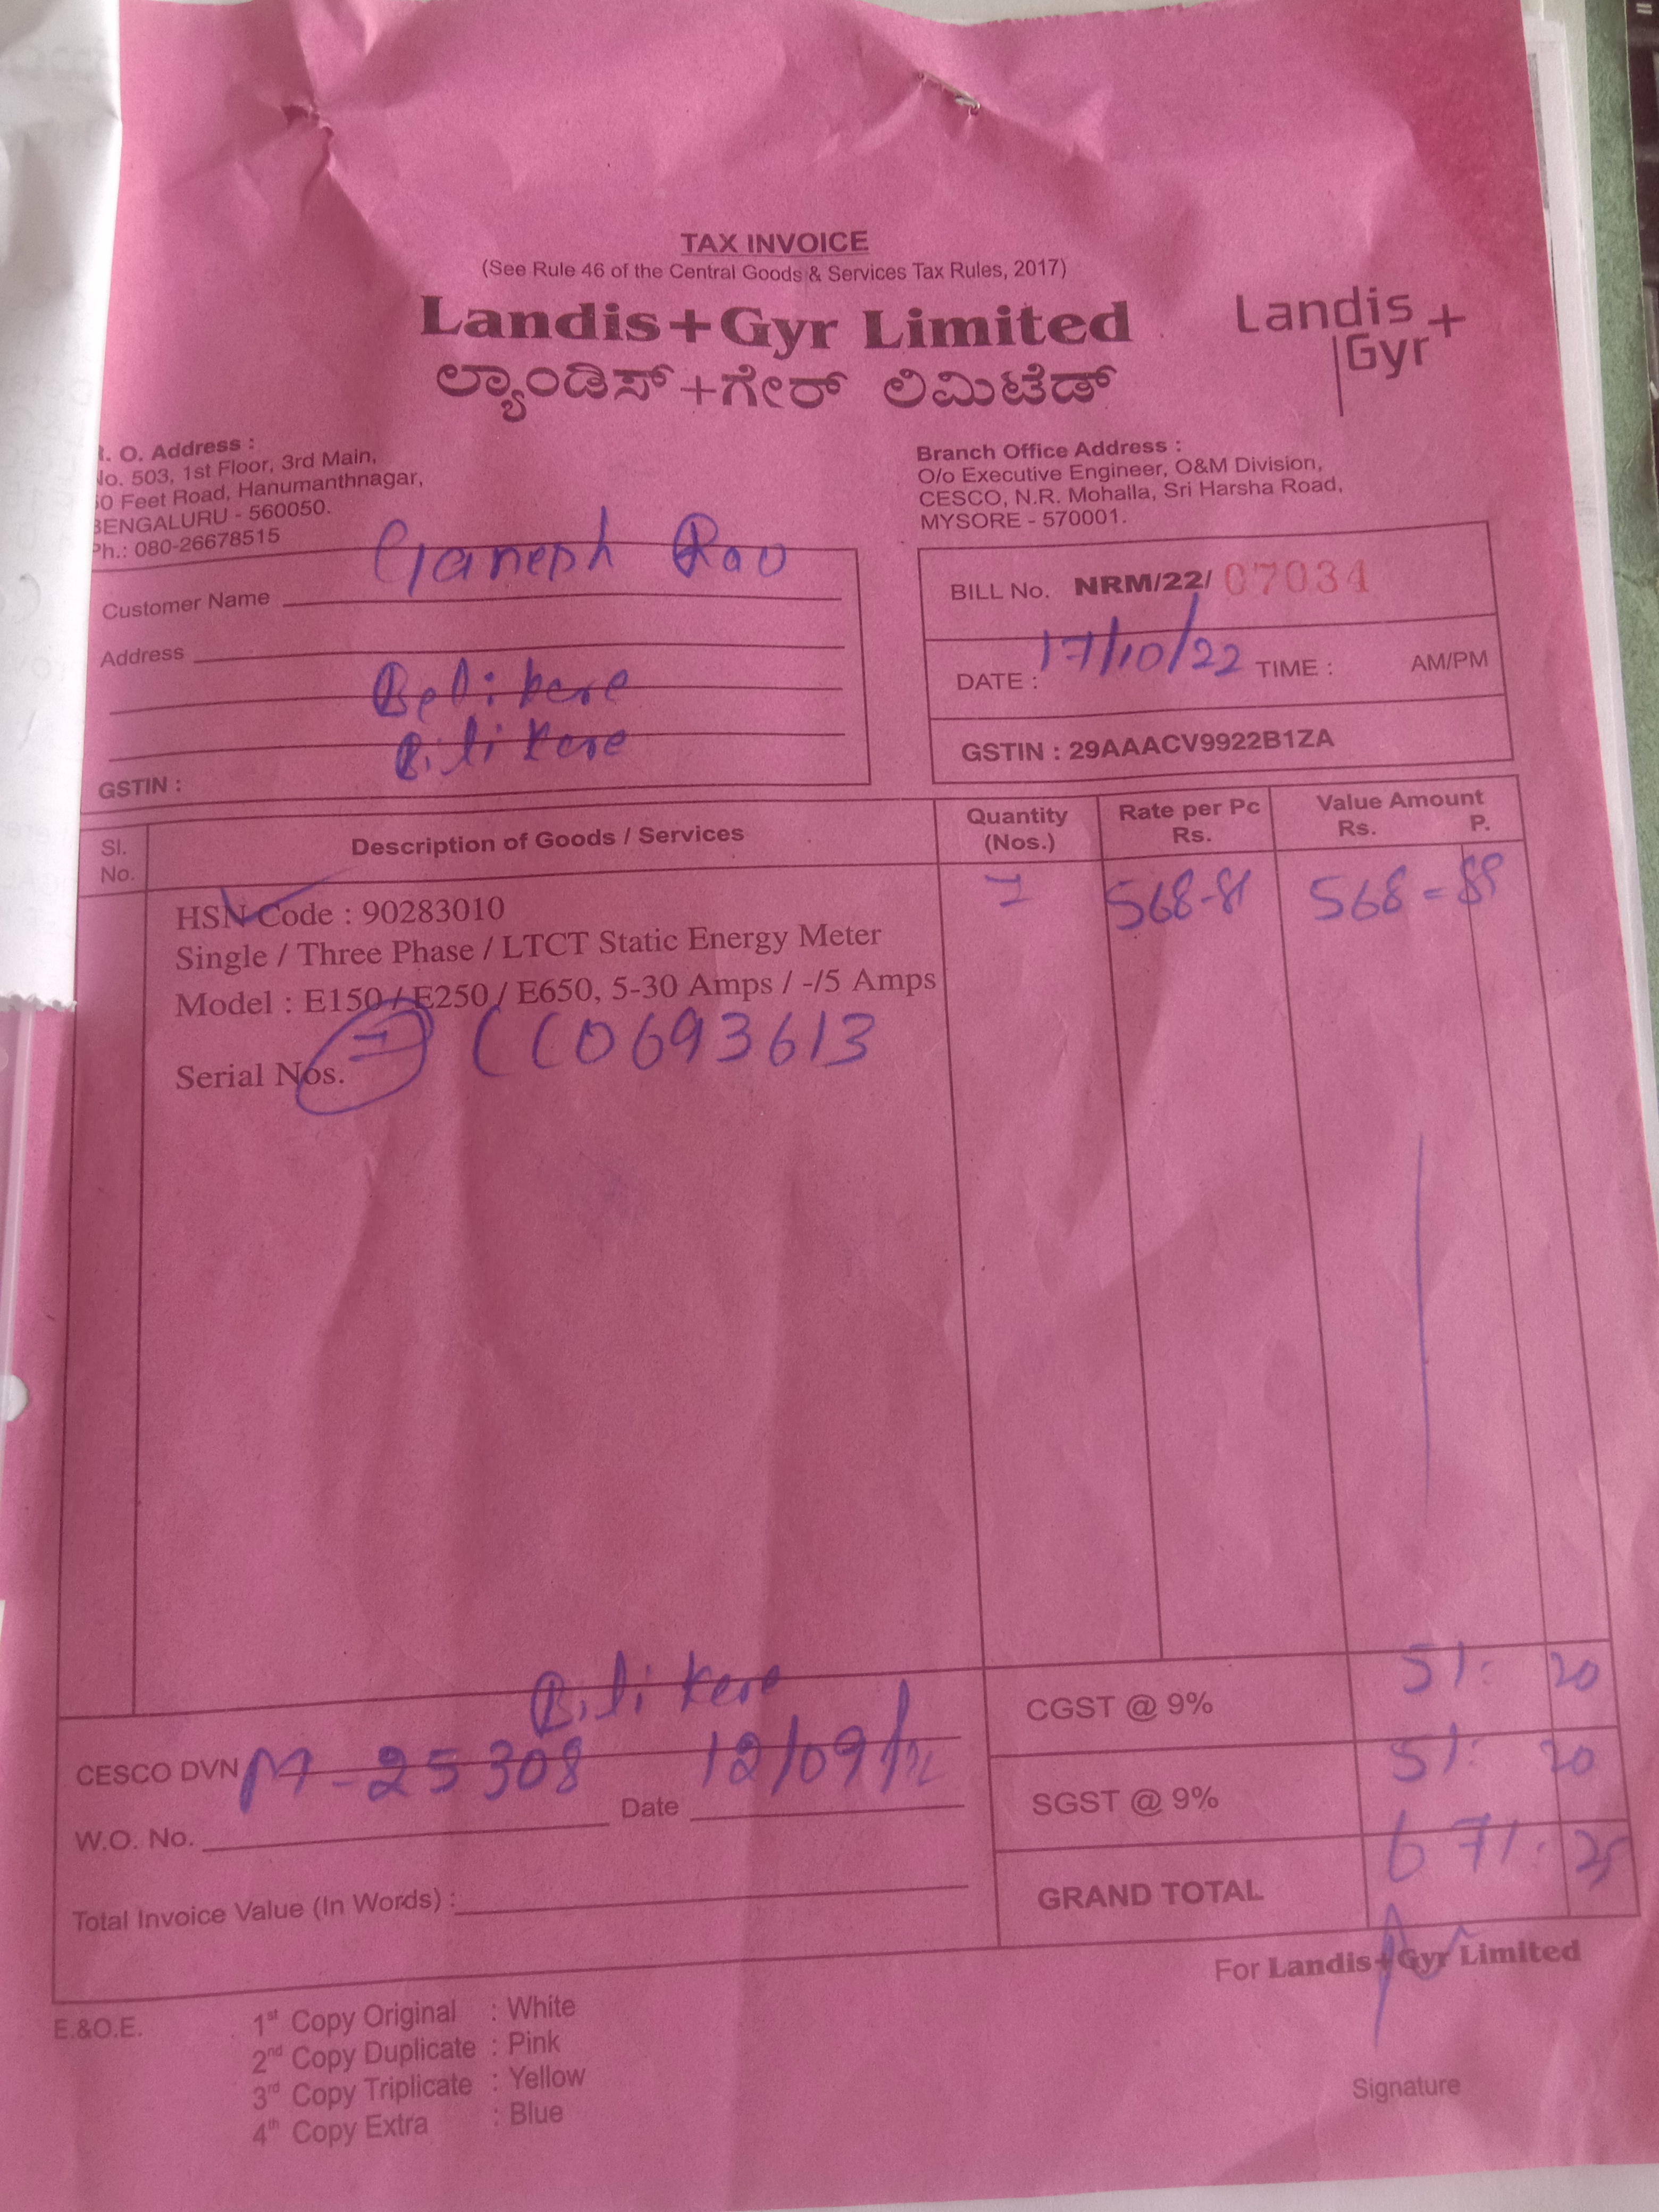 TAX INVOICE
(See Rule 46 of the Central Goods & Services Tax Rules, 2017)
Landis+Gyr Limited
ಲ್ಯಾಂಡಿಸ್+ಗೇರ್ ಲಿಮಿಟೆಡ್
Landis+
Gyr
. O. Address :
No. 503, 1st Floor, 3rd Main,
0 Feet Road, Hanumanthnagar,
BENGALURU - 560050.
Ph.: 080-26678515
Branch Office Address :
O/o Executive Engineer, O&M Division,
CESCO, N.R. Mohalla, Sri Harsha Road,
MYSORE - 570001.
Customer Name Ganesh Rao
Address
Belikere
Bilikere
GSTIN :
BILL No. NRM/22/ 07034
DATE : 17/10/22 TIME : AM/PM
GSTIN : 29AAACV9922B1ZA
Sl. No. Description of Goods / Services Quantity (Nos.) Rate per Pc Rs. Value Amount Rs. P.
HSN Code : 90283010 1 568-81 568=
Single / Three Phase / LTCT Static Energy Meter
Model : E150 / E250 / E650, 5-30 Amps / -/5 Amps
Serial Nos. 1 CC0693613
Bilikere
CESCO DVN M-25308 12/09/
W.O. No. Date
Total Invoice Value (In Words) :
CGST @ 9% 51: 20
SGST @ 9% 51: 20
GRAND TOTAL 671. 25
For Landis+Gyr Limited
E.&O.E.
1st Copy Original : White
2nd Copy Duplicate : Pink
3rd Copy Triplicate : Yellow
4th Copy Extra : Blue
Signature